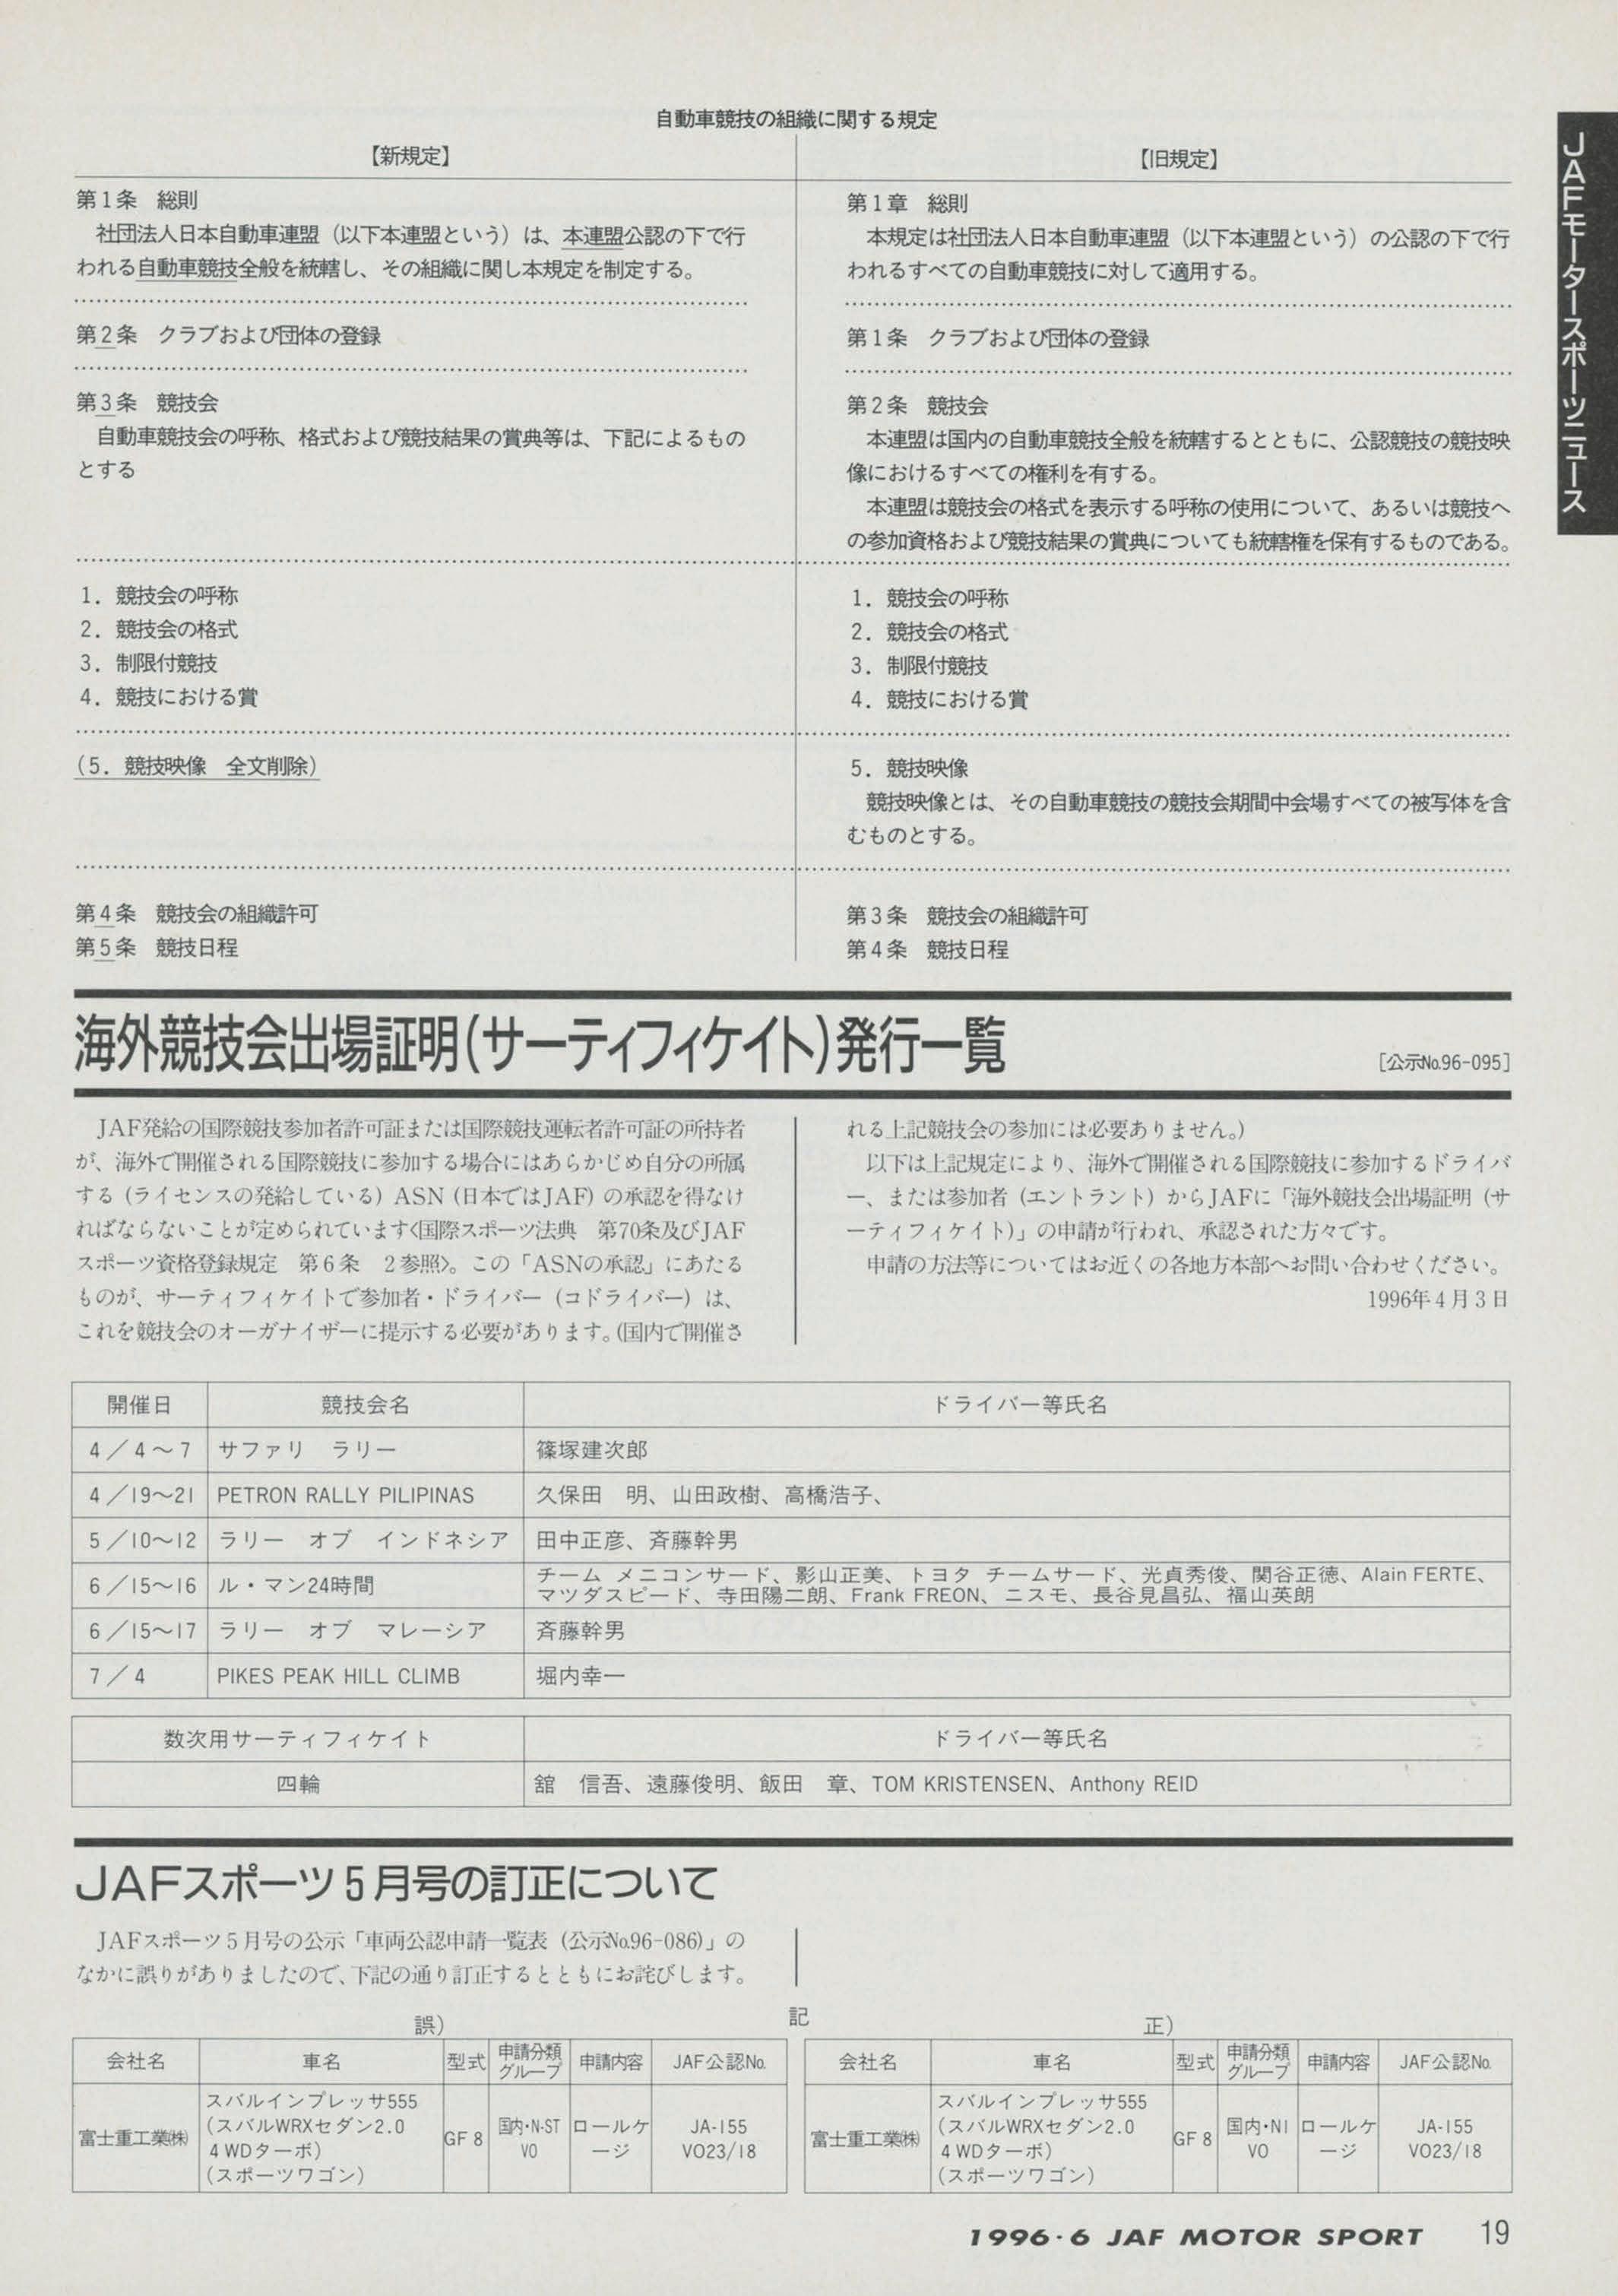 自動車競技の組織に関する規定
【新規定】
第1条　総則
　社団法人日本自動車連盟（以下本連盟という）は、本連盟公認の下で行
われる自動車競技全般を統轄し、その組織に関し本規定を制定する。
第2条　クラブおよび団体の登録
第3条　競技会
　自動車競技会の呼称、格式および競技結果の賞典等は、下記によるもの
とする
1．競技会の呼称
2．競技会の格式
3．制限付競技
4．競技における賞
（5．競技映像　全文削除）
第4条　競技会の組織許可
第5条　競技日程
【旧規定】
第1章　総則
　本規定は社団法人日本自動車連盟（以下本連盟という）の公認の下で行
われるすべての自動車競技に対して適用する。
第1条　クラブおよび団体の登録
第2条　競技会
　本連盟は国内の自動車競技全般を統轄するとともに、公認競技の競技映
像におけるすべての権利を有する。
　本連盟は競技会の格式を表示する呼称の使用について、あるいは競技へ
の参加資格および競技結果の賞典についても統轄権を保有するものである。
1．競技会の呼称
2．競技会の格式
3．制限付競技
4．競技における賞
5．競技映像
　競技映像とは、その自動車競技の競技会期間中会場すべての被写体を含
むものとする。
第3条　競技会の組織許可
第4条　競技日程
JAFモータースポーツニュース
海外競技会出場証明(サーティフィケイト)発行一覧
［公示№96-095］
　JAF発給の国際競技参加者許可証または国際競技運転者許可証の所持者
が、海外で開催される国際競技に参加する場合にはあらかじめ自分の所属
する（ライセンスの発給している）ASN（日本ではJAF）の承認を得なけ
ればならないことが定められています〈国際スポーツ法典　第70条及びJAF
スポーツ資格登録規定　第6条　2参照〉。この「ASNの承認」にあたる
ものが、サーティフィケイトで参加者・ドライバー（コドライバー）は、
これを競技会のオーガナイザーに提示する必要があります。（国内で開催さ
れる上記競技会の参加には必要ありません。）
　以下は上記規定により、海外で開催される国際競技に参加するドライバ
ー、または参加者（エントラント）からJAFに「海外競技会出場証明（サ
ーティフィケイト）」の申請が行われ、承認された方々です。
　申請の方法等についてはお近くの各地方本部へお問い合わせください。
1996年4月3日
開催日　競技会名　ドライバー等氏名
4／4～7　サファリ　ラリー　篠塚建次郎
4／19～21　PETRON RALLY PILIPINAS　久保田　明、山田政樹、高橋浩子、
5／10～12　ラリー　オブ　インドネシア　田中正彦、斉藤幹男
6／15～16　ル・マン24時間　チーム メニコンサード、影山正美、トヨタ チームサード、光貞秀俊、関谷正徳、Alain FERTE、
マツダスピード、寺田陽二朗、Frank FREON、ニスモ、長谷見昌弘、福山英朗
6／15～17　ラリー　オブ　マレーシア　斉藤幹男
7／4　PIKES PEAK HILL CLIMB　堀内幸一
数次用サーティフィケイト　ドライバー等氏名
四輪　舘　信吾、遠藤俊明、飯田　章、TOM KRISTENSEN、Anthony REID
JAFスポーツ5月号の訂正について
　JAFスポーツ5月号の公示「車両公認申請一覧表（公示№96-086）」の
なかに誤りがありましたので、下記の通り訂正するとともにお詫びします。
記
誤）
会社名　車名　型式　申請分類グループ　申請内容　JAF公認№
富士重工業㈱　スバルインプレッサ555
（スバルWRXセダン2.0
4WDターボ）
（スポーツワゴン）
GF8　国内・N-ST
VO
ロールケ
ージ
JA-155
VO23/18
正）
会社名　車名　型式　申請分類グループ　申請内容　JAF公認№
富士重工業㈱　スバルインプレッサ555
（スバルWRXセダン2.0
4WDターボ）
（スポーツワゴン）
GF8　国内・N1
VO
ロールケ
ージ
JA-155
VO23/18
1996・6 JAF MOTOR SPORT　19